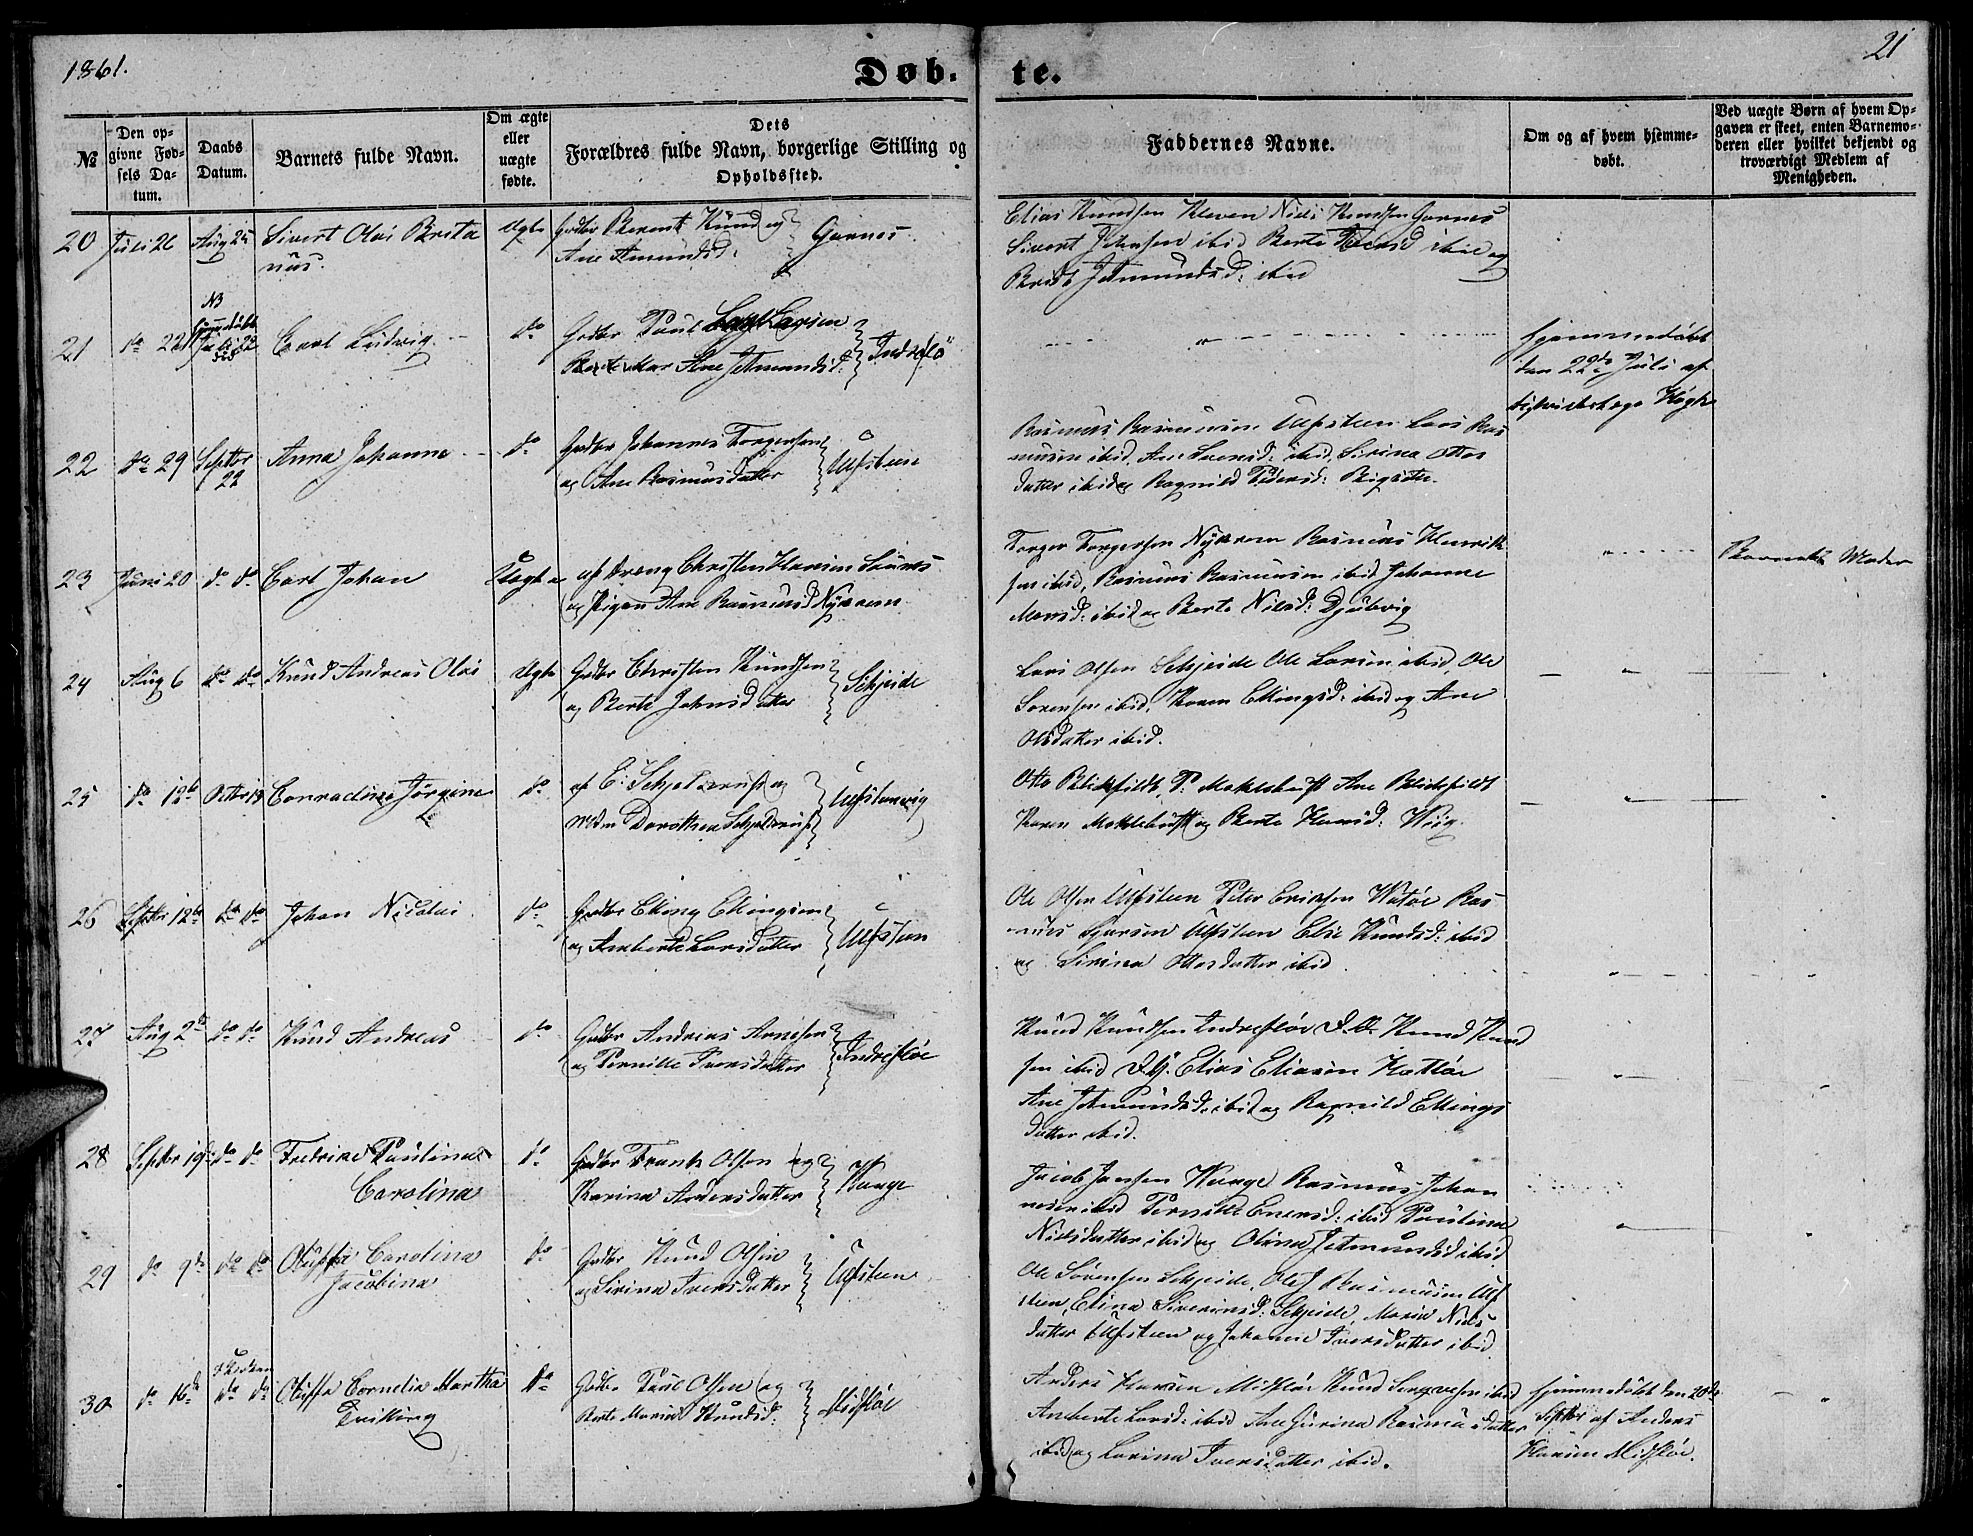 1861.
Døb-
te.
21
№
Den op-
givne Fød-
sels Da-
tum.
Daabs
Datum.
Barnets fulde Navn.
Om ægte
eller
uægte
fødte.
Dets
Forældres fulde Navn, borgerlige Stilling og
Opholdssted.
Faddernes Navne.
Om og af hvem hjemme-
døbt.
Ved uægte Børn af hvem Op-
gaven er skeet, enten Barnemo-
deren eller hvilket bekjendt og
troværdigt Medlem af
Menigheden.
20 Juli 26 Aug 25 Sivert Olai Brita
nus.
Ægte Gmdbr Berent Knud og
Ane Amundsd: Garnes
Elias Knudsen Kleven Niels Knudsen Garnes
Sivert Johnsen ibid Berte ibid og
Berit Jetmundsd: ibid
21 do 22 NB Hjemmedøbt Juli 22 Carl Ludvig do
Gmdbr Poul Larsen
Berte Mar Ane Jetmundsd: Indreflø
Hjemmedøbt
den 22de Juli af
Distriktslæge Høgh
22 do 29 Septbr
22
Anna Johanna do
Gmdbr Johannes Torgersen
og Ane Rasmusdatter Ulfsteen
Rasmus Rasmussen Ulfsteen Lars Ras
musen ibid, Ane Larsd: ibid, Sirina Ottos
datter ibid og Ragnild Pedersd:
23 Juni 20 do do Carl Johan Uægte
af Dreng Christen Hansen
og Pigen Ane Rasmusd Nykrem
Torger Torgersen Nykrem Rasmus Henrik
sen ibid, Rasmus Rasmussen ibid Johanne
Monsd: ibid og Berte Nilsd: Djubvig
Barnets Moder
24 Aug 6 do do Knud Andreas Olai Ægte
Gmdbr Christen Knudsen
og Berte Johnsdatter Schjeide
Lars Olsen Schjeide Ole Larsen ibid, Ole
Sørensen ibid, Karen Ellingsd: ibid og Ane
Olsdatter ibid.
25 do 12te Octbr 13 Conradine Jørgine do
af E: Schjelderup og
Mdm Dorothea Schjelderup Ulfsteenvig
Otto Blichfeldt, P: Moklebust Ane Blichfeldt
Karen Moklebust og Berte Hansd: Wiig.
26 Septbr 12te do do Johan Nicolai do
Gmdbr Elling Ellingsen
og Amberte Larsdatter Ulfsteen
Ole Olsen Ulfsteen Peter Eriksen Watøe Ras
mus Sjursen Ulfsteen Else Knudsd: ibid
og Sirina Ottosdatter ibid.
27 Aug 2de do do Knud Andreas do
Gmdbr Andreas Arnesen
og Pernille Iversdatter Indrefløe
Knud Knudsen Indrefløe D.Æ. Knud Knud
sen ibid D.Y. Elias Eliasen Hatløe
Ane Jetmundsd: ibid og Ragnild Ellings
datter ibid.
28 Septbr 19de do do Fredrike Paulina
Carolina
do
Gmdbr Frants Olsen og
Karina Andersdatter Hauge
Jacob Jansen Hauge Rasmus Johan
nesen ibid Pernille Enersd: ibid Paulina
Nielsdatter ibid og Olina Jetmundsd ibid
29 do 9de do do Oluffa Carolina
Jacobina
do
Gmdbr Knud Olsen
og Sirina Iversdatter Ulfsteen
Ole Sørensen Schjeide, Ole J Rasmusen Ulf
steen, Elina Siverinsd: Schjeide, Maria Niels
datter Ulfsteen og Johanne Iversdatter ibid
30 do 16de do do Oluffa Cornelia Martha
Tvilling
do
Gmdbr Paul Olsen og
Berte Marie Knudsd: Midfløe
Anders Hansen Midfløe Knud ibid
Amberte Larsd: ibid Ane Gurina Rasmusdatter
ibid og Larina Iversdatter ibid.
Hjemmedøbt den 20de
Septbr af Anders
Hansen Midfløe.